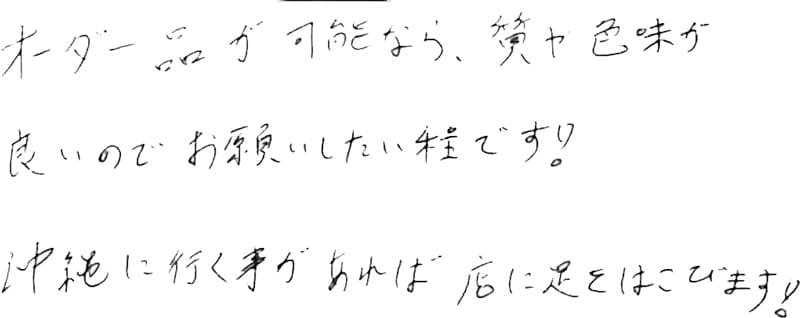 オーダー品が可能なら、質や色味が
良いのでお願いしたい程です!!
沖縄に行く事があれば店に足をはこびます!!